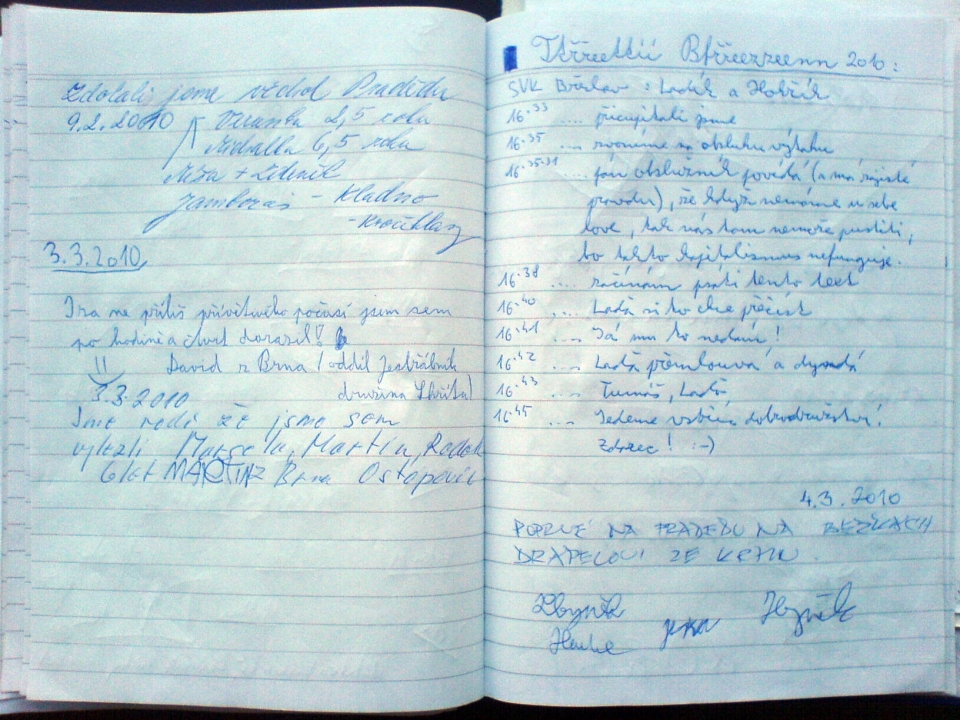 Zdolali jsme vrchol Pradědu
9.2.2010 Veronika 2,5 roku
6,5 roku
Míša + Zdeněk
Jamborovi - Kladno
- Kročehlavy
3.3.2010
I za ne příliš přívětivého počasí jsem sem
po hodině a čtvrt dorazil!
David z Brna (oddíl Jestřábník
družina Skřítci)
3.3.2010
Jsme rádi že jsme sem
vylezli Marcela, Martin, Radek
6 let MARTIN Z Brna Ostopovic
Tkřřeettíí Bfřřeezzeenn 2010:
SVK Břeclav : Ladík a Hobřík
16:33 .... přicupitali jsme
16:35 .... zvoníme na obsluhu výtahu
16:35:31 .... pán obslužník povídá (a má zajisté
pravdu), že když nemáme u sebe
love, tak nás tam nemože pustiti,
bo takto kapitalismus nefunguje.
16:38 .... začínám psáti tento text
16:40 .... Laďa si to chce přečíst
16:41 .... Já mu to nedám!
16:42 .... Laďa přemlouvá a dyndá
16:43 .... Tumáš, Laďo
16:45 .... Jedeme vstříc dobrodružství!
Zdrzec! :-)
4.3.2010
POPRVÉ NA PRADĚDU NA BĚŽKÁCH
DRÁPELOVI ZE KRNOV.
Zbyněk Hynek
Hanka